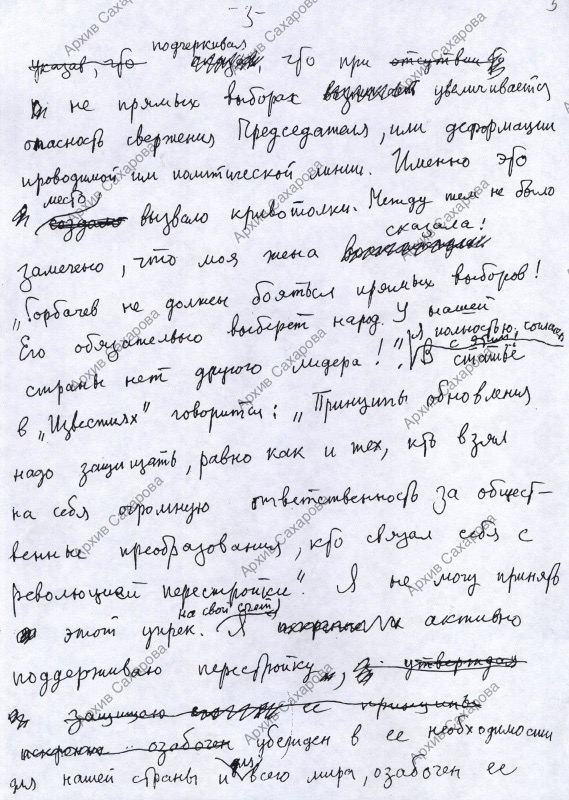 - 3 -
подчеркивая
~~указав, что~~ что при ~~отсутствии~~
не прямых выборах увеличивается
опасность свержения Председателя, или деформации
проводимой им политической линии. Именно это
место
~~создало~~ вызвало кривотолки. Между тем не было
сказала!
замечено, что моя жена
„Горбачев не должен бояться прямых выборов!
Его обязательно выберет народ. У нашей
Я полностью согласен
с этим!
страны нет другого лидера!" В статье
в „Известиях" говорится: „Принципы обновления
надо защищать, равно как и тех, кто взял
на себя огромную ответственность за общест-
венные преобразования, кто связал себя с
революцией перестройки". Я не могу принять
на свой счет
этот упрек. Я активно
поддерживаю перестройку, ~~утверждая~~
~~защищаю~~ ~~ее принципы~~
~~искренне озабочен~~ убежден в ее необходимости
для
для нашей страны и всего мира, озабочен ее
Архив Сахарова